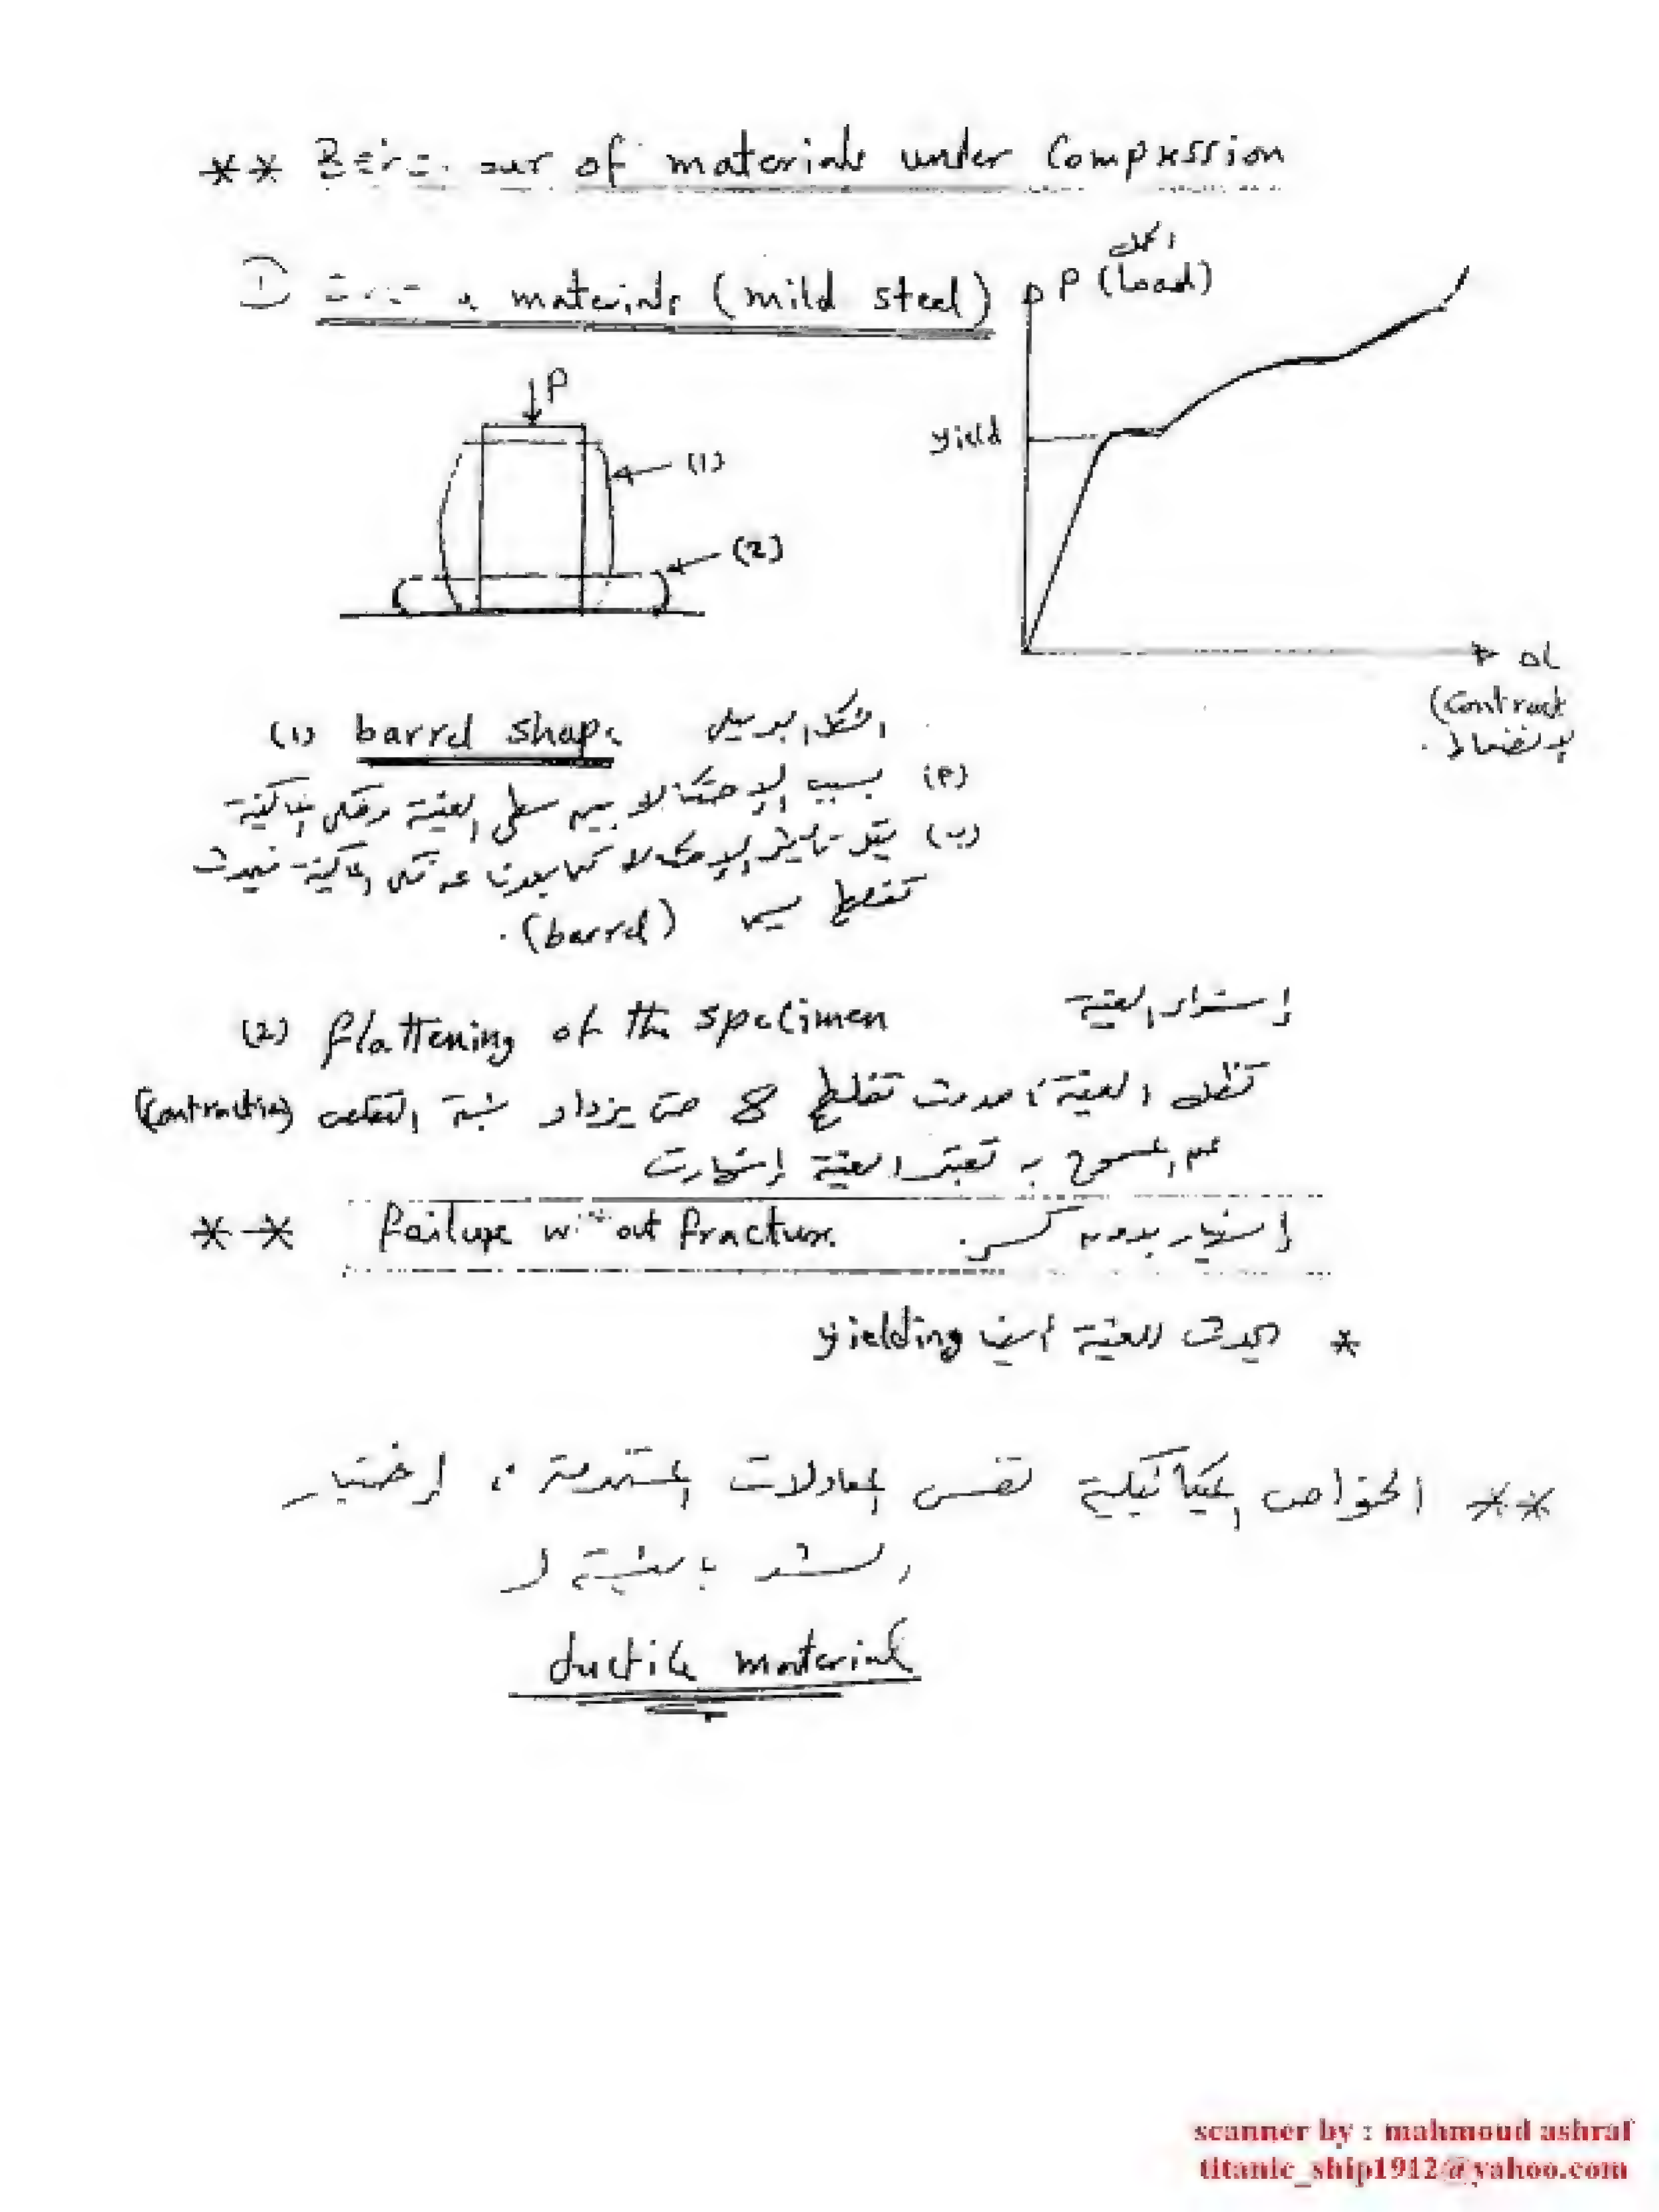 ** Behaviour of materials under Compression
① materials (mild steel)
P (load)
الحمل
P
yield
(1)
(2)
ΔL
(Contract
الإنضغاط.
(1) barrel shape الشكل البرميلى
(أ) بسبب الإحتكاك بين سطحى العينة وفكى الماكينة
(ب) يقل تأثير الإحتكاك كما بعدنا عن فكى الماكينة فيحدث
تفلطح يسمى (barrel).
(2) flattening of the specimen إستواء العينة
تظل العينة فى حدوث تفلطح حتى يزداد نسبة التقلص (Contraction)
عن المسموح به تعتبر العينة إنهارت
** failure without fracture. إنهيار بدون كسر.
* يحدث للعينة أيضاً yielding
** الخواص الميكانيكية نفس المعادلات المستخدمة فى إختبار
الشد بالنسبة لـ
ductile material
scanner by : mahmoud ashraf
titanic_ship1912@yahoo.com